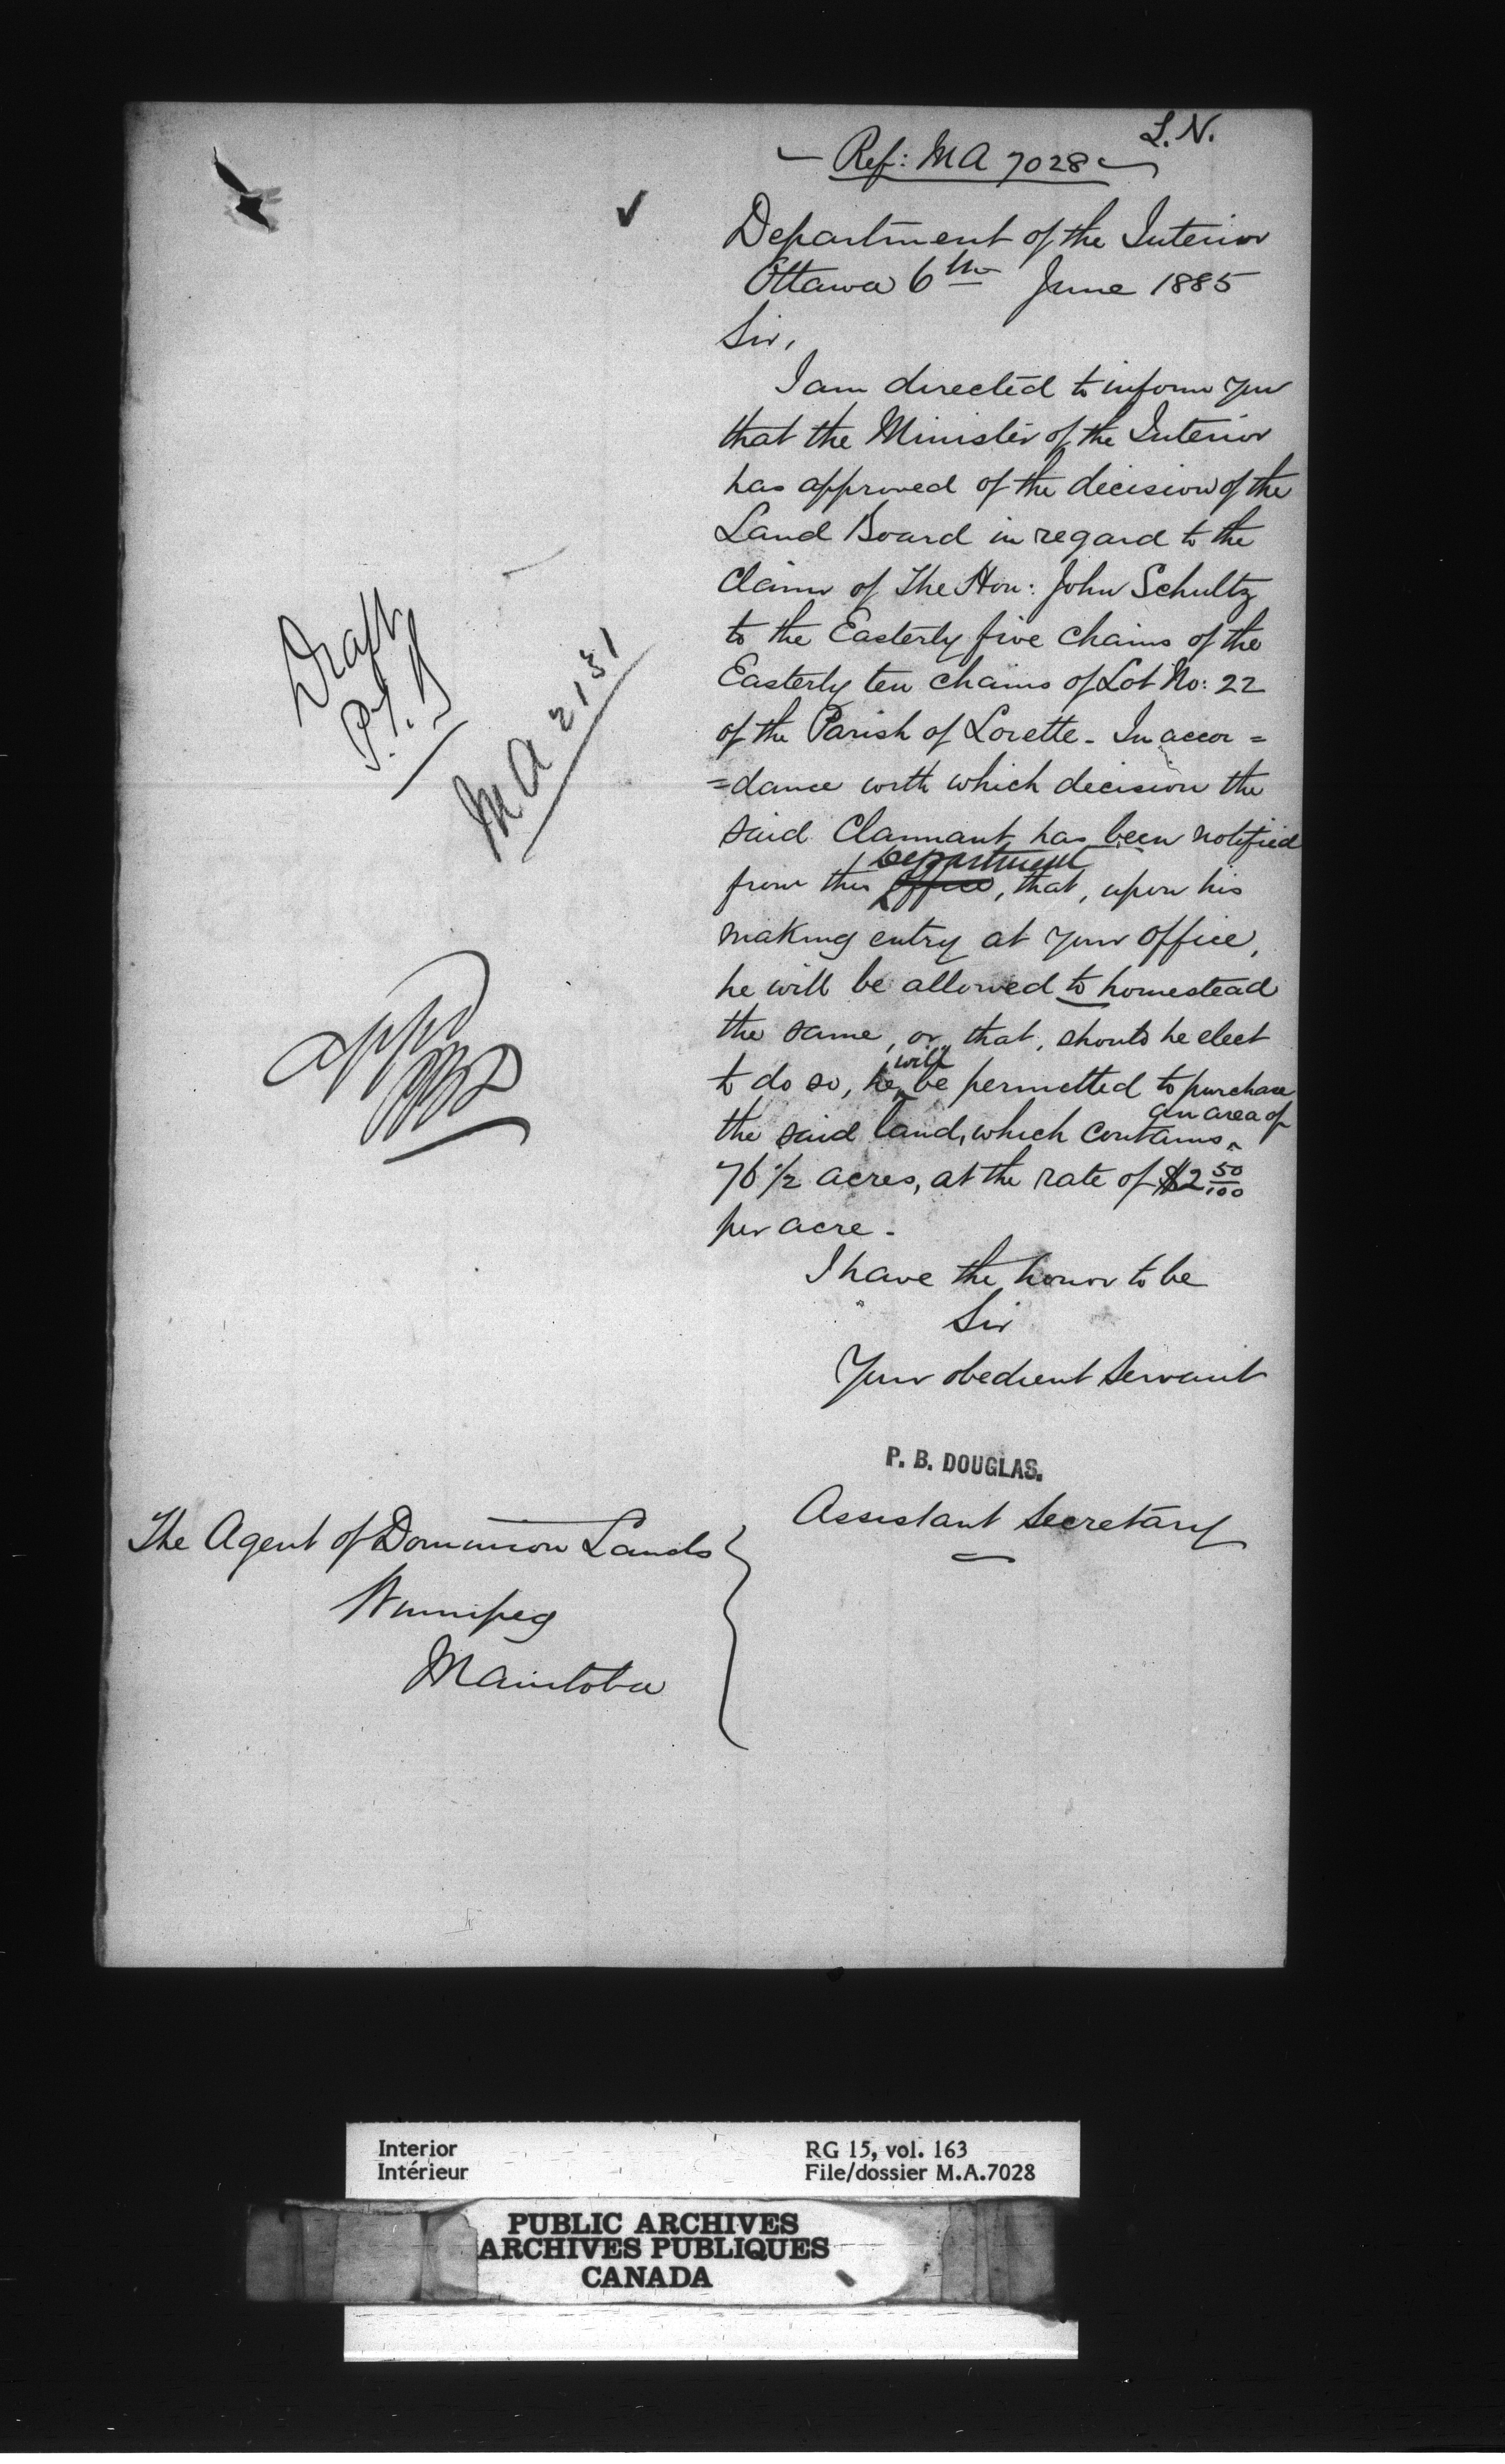 L.N.
Ref: MA 7028
Department of the Interior
Ottawa 6th June 1885
Sir,
I am directed to inform you
that the Minister of the Interior
has approved of the decision of the
Land Board in regard to the
Claim of The Hon: John Schultz
to the Easterly five chains of the
Easterly ten chains of Lot No: 22
of the Parish of Lorette - In accor =
=dance with which decision the
said Claimant has been notified
Department
from this office, that, upon his
making entry at your office,
he will be allowed to homestead
the same, or that, should he elect
will
to do so, he be permitted to purchase
an area of
the said land, which contains
76 1/2 acres, at the rate of $2 50/100
per acre -
I have the honor to be
Sir
Your obedient Servant
P. B. DOUGLAS.
Assistant Secretary
Draft
MA 2131
appd
The Agent of Dominion Lands
Winnipeg
Manitoba
Interior
Intérieur
RG 15, vol. 163
File/dossier M.A.7028
PUBLIC ARCHIVES
ARCHIVES PUBLIQUES
CANADA